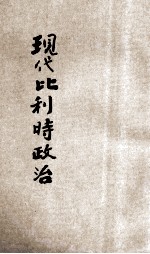 现代比利時政治